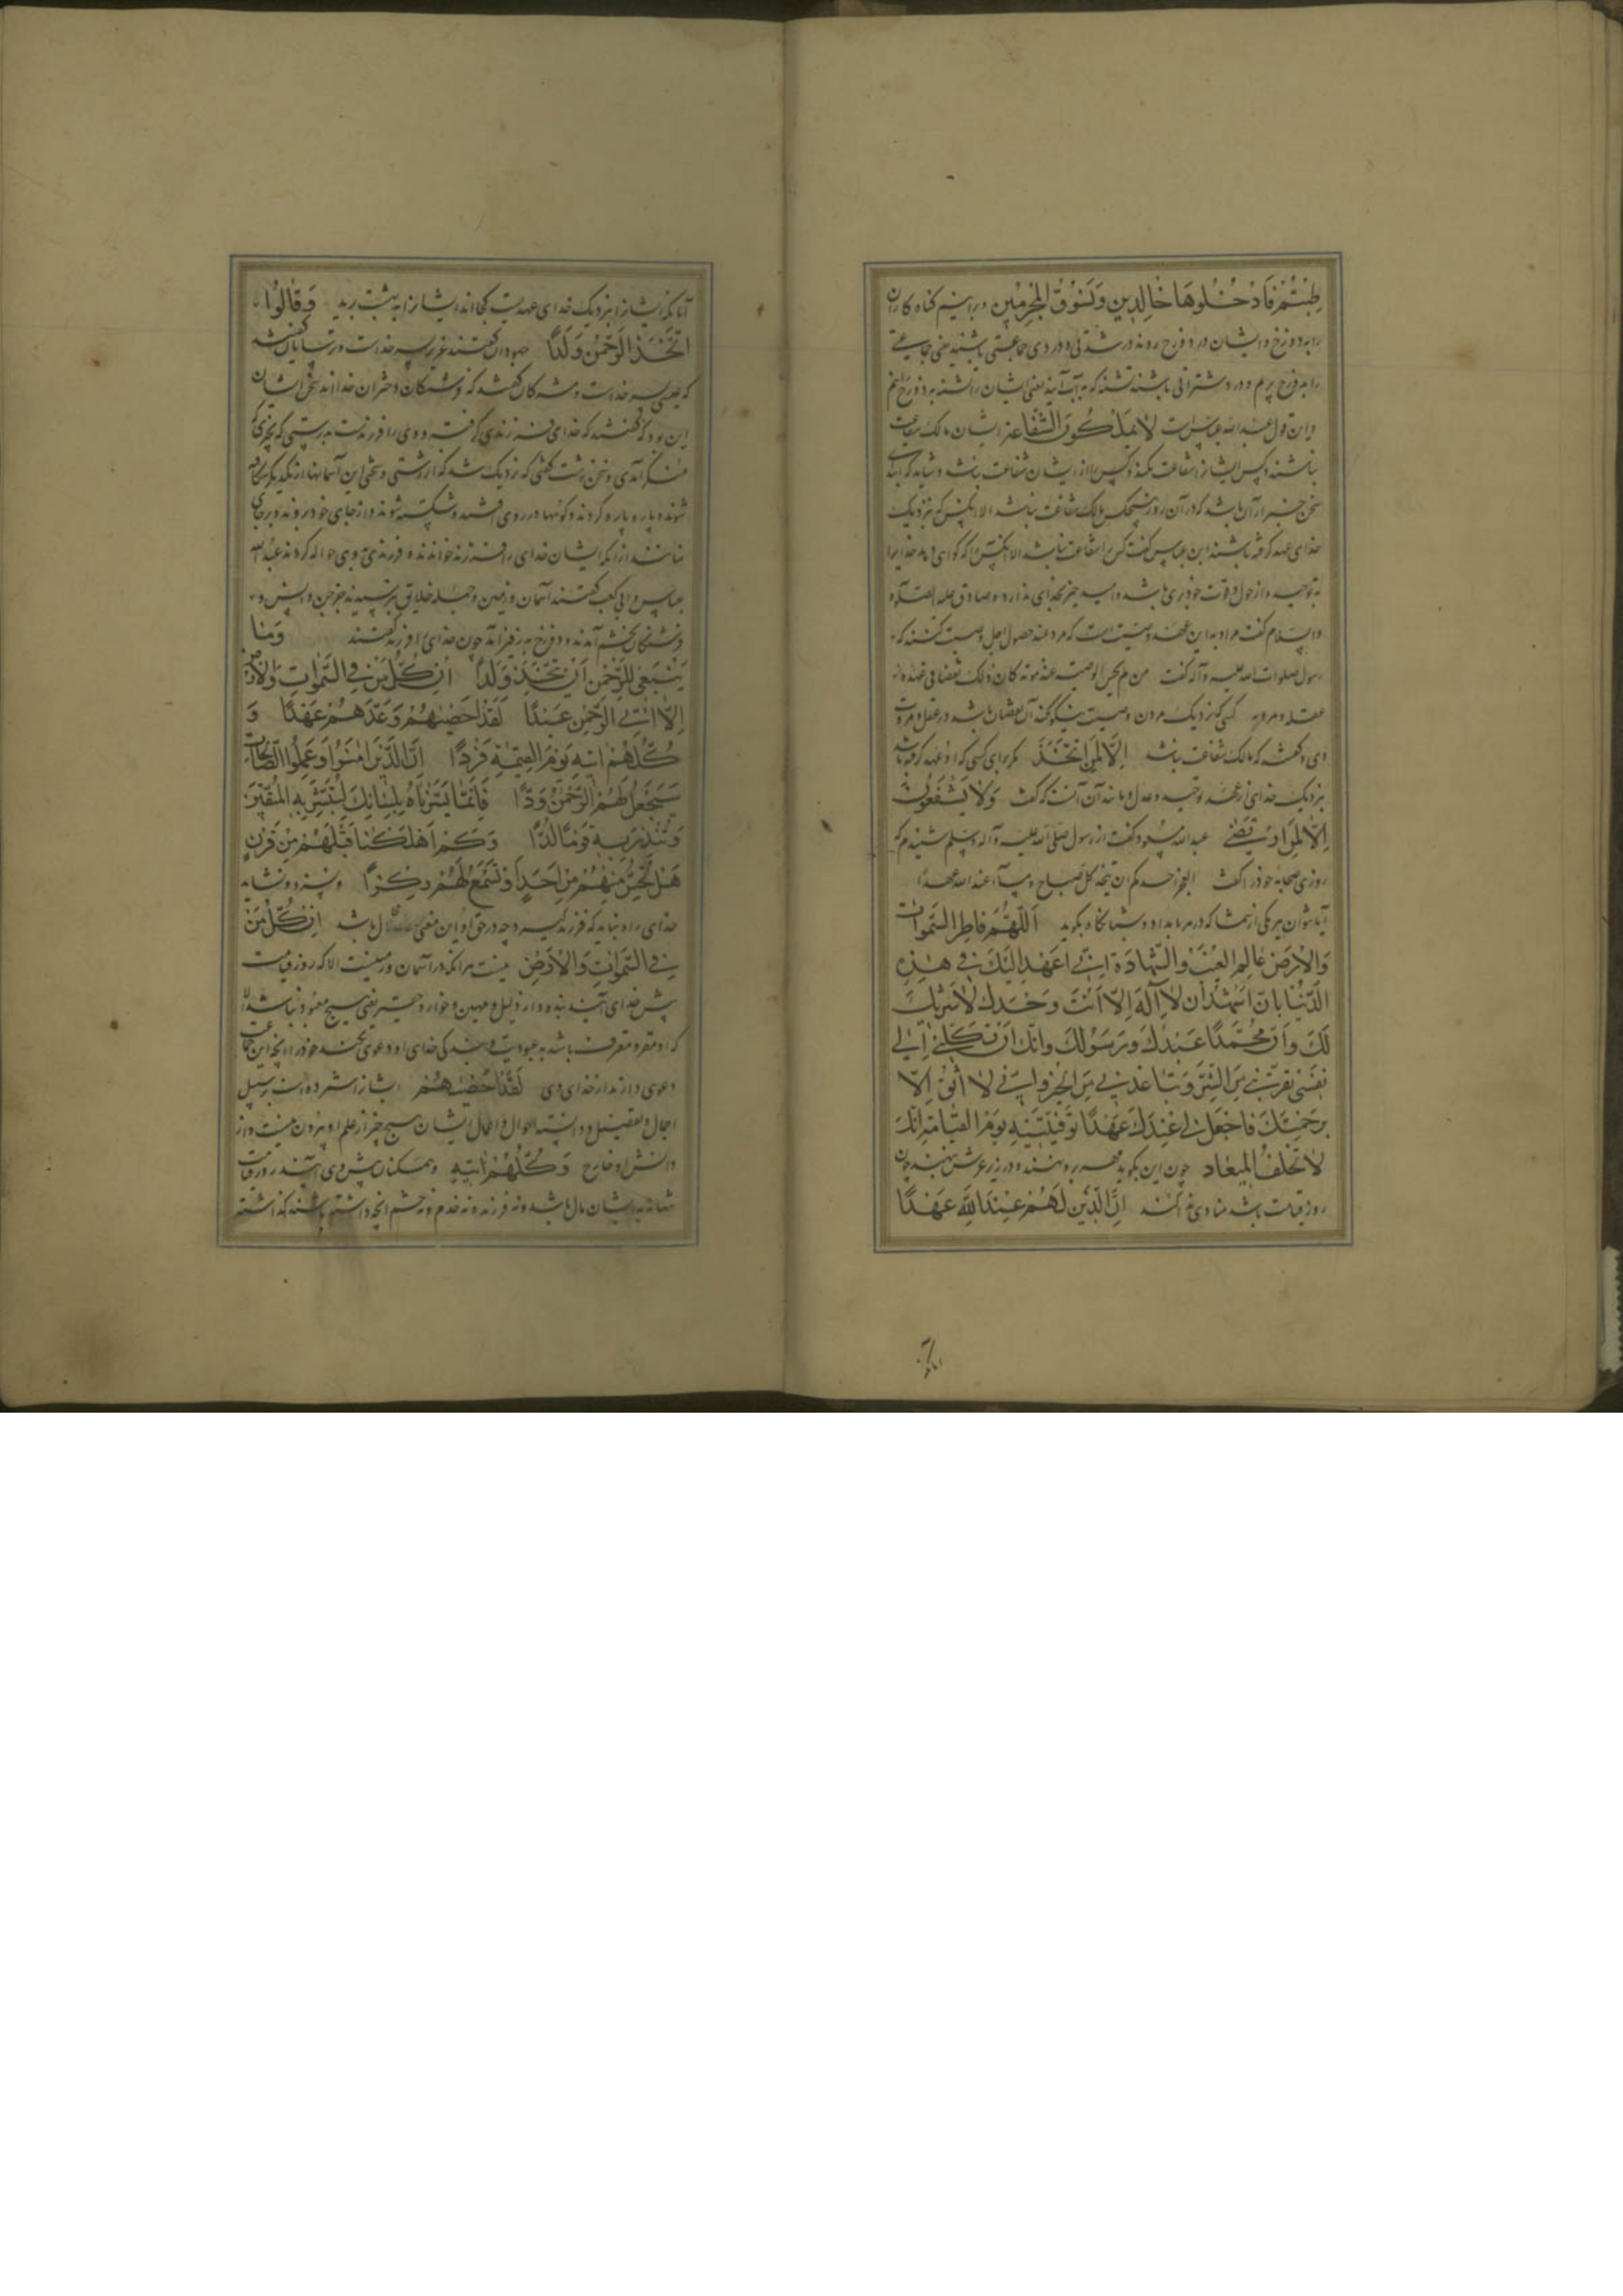 طِبْتُمْ فَادْخُلُوهَا خَالِدِين وَنَسُوقُ الْمُجْرِمِين وبرانیم کناه کاران
را به دوزخ وایشان در دوزخ روند در تشنگی و در وی جماعتی باشند یعنی جماعتی
را به دوزخ بریم و در تشنه باشند که به آب آیند یعنی ایشان را تشنه به دوزخ رانیم
و این قول عبد الله عباس است لَا یَمْلِکُونَ الشَّفَاعَة ایشان مالک شفاعت
نباشند وکس ایشانرا شفاعت نکند وکس را از ایشان شفاعت نباشد وشاید که ابتدای
سخن باشد که در آن روز هیچکس مالک شفاعت نباشد الا آنکس که نزدیک
خدای عهد کرفته باشند ابن عباس کفت کس را شفاعت نباشد الا آنکس را که کواهی دهد خدایرا
به توحید و از حول وقوت خود بری باشد وامید جز بخدای ندارد وصادق علیه الصلوة
والسلام کفت مراد به این عهد وصیت است که مرد عند حصول اجل وصیت کند که
رسول صلوات الله علیه وآله کفت من لم یحسن الوصیة عند موته کان ذلک نقصا فی عقله
عقله ومروته کسی که نزدیک مردن وصیت نیکو نکند آن نقصان باشد در عقل ومروت
وی وکفتند که مالک شفاعت نباشد اِلَّا لِمَنِ اتَّخَذَ مکر برای کسی که او عهد کرفته باشد
بنزدیک خدای از عهد توحید وعدل ومانند آن آنست که کفت وَلَا یَشْفَعُونَ
اِلَّا لِمَنِ ارْتَضٰی عبد الله مسعود کفت از رسول صلی الله علیه وآله وسلم شنیدم که
روزی صحابه خود را کفت ایعجز احدکم ان یتخذ کل صباح ومساء عند الله عهدًا
آیا نتوان هر یکی از شما که در هر بامداد وشبانکاه بکوید اَللّٰهُمَّ فَاطِرَ السَّمٰوَات
وَالْاَرْضِ عَالِمَ الْغَیْبِ وَالشَّهَادَةِ اِنِّی اَعْهَدُ اِلَیْکَ فِی هٰذِهِ
الدُّنْیَا بِاَنِّی اَشْهَدُ اَنْ لَا اِلٰهَ اِلَّا اَنْتَ وَحْدَکَ لَا شَرِیکَ
لَکَ وَاَنَّ مُحَمَّدًا عَبْدُکَ وَرَسُولُکَ وَاِنَّکَ اِنْ تَکِلْنِی اِلٰی
نَفْسِی تُقَرِّبْنِی مِنَ الشَّرِّ وَتُبَاعِدْنِی مِنَ الْخَیْرِ وَاِنِّی لَا اَثِقُ اِلَّا
بِرَحْمَتِکَ فَاجْعَلْ لِی عِنْدَکَ عَهْدًا تُوَفِّیَنِیهِ یَوْمَ الْقِیَامَةِ اِنَّکَ
لَا تُخْلِفُ الْمِیعَاد چون این بکوید مهر برو نهند ودر زیر عرش نهند چون
روز قیامت باشد منادی ندا کند اِنَّ الَّذِینَ لَهُمْ عِنْدَ اللّٰهِ عَهْدًا
آنانکه
آنانکه ایشانرا بنزدیک خدای عهدیست کجااند ایشانرا به بهشت برید وَقَالُوا
اتَّخَذَ الرَّحْمٰنُ وَلَدًا جهودان کفتند عزیر پسر خداست وترسایان کفتند
که عیسی پسر خداست ومشرکان کفتند که فرشتکان دختران خدااند سخن ایشان
این بود که کفتند که خدای فرزندی کرفت و وی را فرزندست بدرستی که چیزی
منکر آمدی وسخن زشت کفتی که نزدیک شد که از زشتی وسختی این آسمانها از یکدیکر شکافته
شوند وپاره پاره کردند وکوهها در روی افتند وشکسته شوند واز جای خود روند وبر جای
نمانند از آنکه ایشان خدای را فرزند خواندند وفرزندی به وی حواله کردند عبد الله
عباس وابی کعب کفتند آسمان وزمین وجمله خلایق بترسیدند جز جن وانس و
فرشتکان بخشم آمدند ودوزخ به زفیر آمد چون خدای را فرزند کفتند وَمَا
یَنْبَغِی لِلرَّحْمٰنِ اَنْ یَتَّخِذَ وَلَدًا اِنْ کُلُّ مَنْ فِی السَّمٰوَاتِ وَالْاَرْض
اِلَّا اٰتِی الرَّحْمٰنِ عَبْدًا لَقَدْ اَحْصٰیهُمْ وَعَدَّهُمْ عَدًّا وَ
کُلُّهُمْ اٰتِیهِ یَوْمَ الْقِیٰمَةِ فَرْدًا اِنَّ الَّذِینَ اٰمَنُوا وَعَمِلُوا الصَّالِحَاتِ
سَیَجْعَلُ لَهُمُ الرَّحْمٰنُ وُدًّا فَاِنَّمَا یَسَّرْنَاهُ بِلِسَانِکَ لِتُبَشِّرَ بِهِ الْمُتَّقِینَ
وَتُنْذِرَ بِهِ قَوْمًا لُدًّا وَکَمْ اَهْلَکْنَا قَبْلَهُمْ مِنْ قَرْنٍ
هَلْ تُحِسُّ مِنْهُمْ مِنْ اَحَدٍ اَوْ تَسْمَعُ لَهُمْ رِکْزًا ونسزد ونشاید
خدای را ونباید که فرزند کیرد چه در حق او این معنی محال باشد اِنْ کُلُّ مَنْ
فِی السَّمٰوَاتِ وَالْاَرْضِ نیست هر آنکه در آسمان وزمینست الا که روز قیامت
پیش خدای آیند بنده وار ذلیل ومهین وخوار وحقیر یعنی هیچ معبود نباشد الا
که او مقر ومعترف باشد به عبودیت وبندکی خدای او دعوی نکند خود را آنچه این جماعت
دعوی دارند از خدای وی لَقَدْ اَحْصٰیهُمْ ایشانرا شمرده است بر سبیل
اجمال وتفصیل ودانسته احوال واعمال ایشان هیچ چیز از علم او بیرون نیست واز
دانش او خارج وَکُلُّهُمْ اٰتِیهِ وهمکنان پیش وی آیند روز قیامت
تنها نه با ایشان مال باشد ونه فرزند ونه خدم ونه حشم آنچه داشته باشند کذاشته